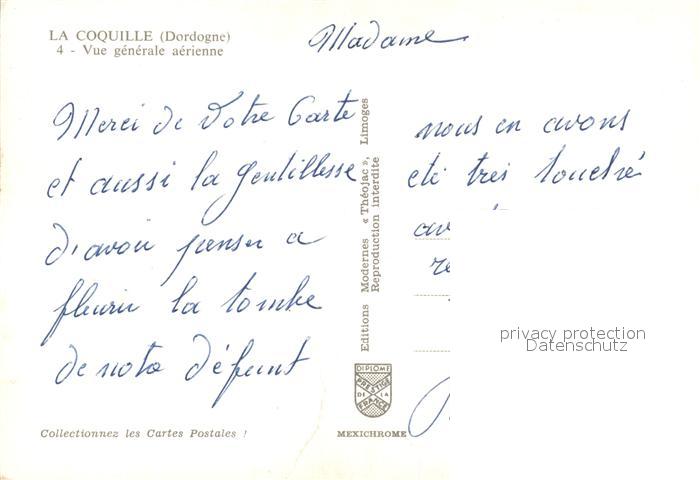 LA COQUILLE (Dordogne)
4 - Vue générale aérienne
Madame
Merci de Votre Carte
et aussi la gentillesse
d'avoir penser a
fleurir la tombe
de notre défunt
nous en avons
eté très touché
av
re
Editions Modernes « Théojac », Limoges
Reproduction interdite
DIPLOME
PRESTIGE
DE LA
FRANCE
MEXICHROME
Collectionnez les Cartes Postales !
privacy protection
Datenschutz